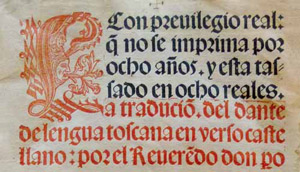 Con preuilegio real:
q̃ no se imprima por
ocho años. y esta tas-
sado en ocho reales.
La traduciõ del dante
de lengua toscana en verso caste
llano: por el Reuerẽdo don po